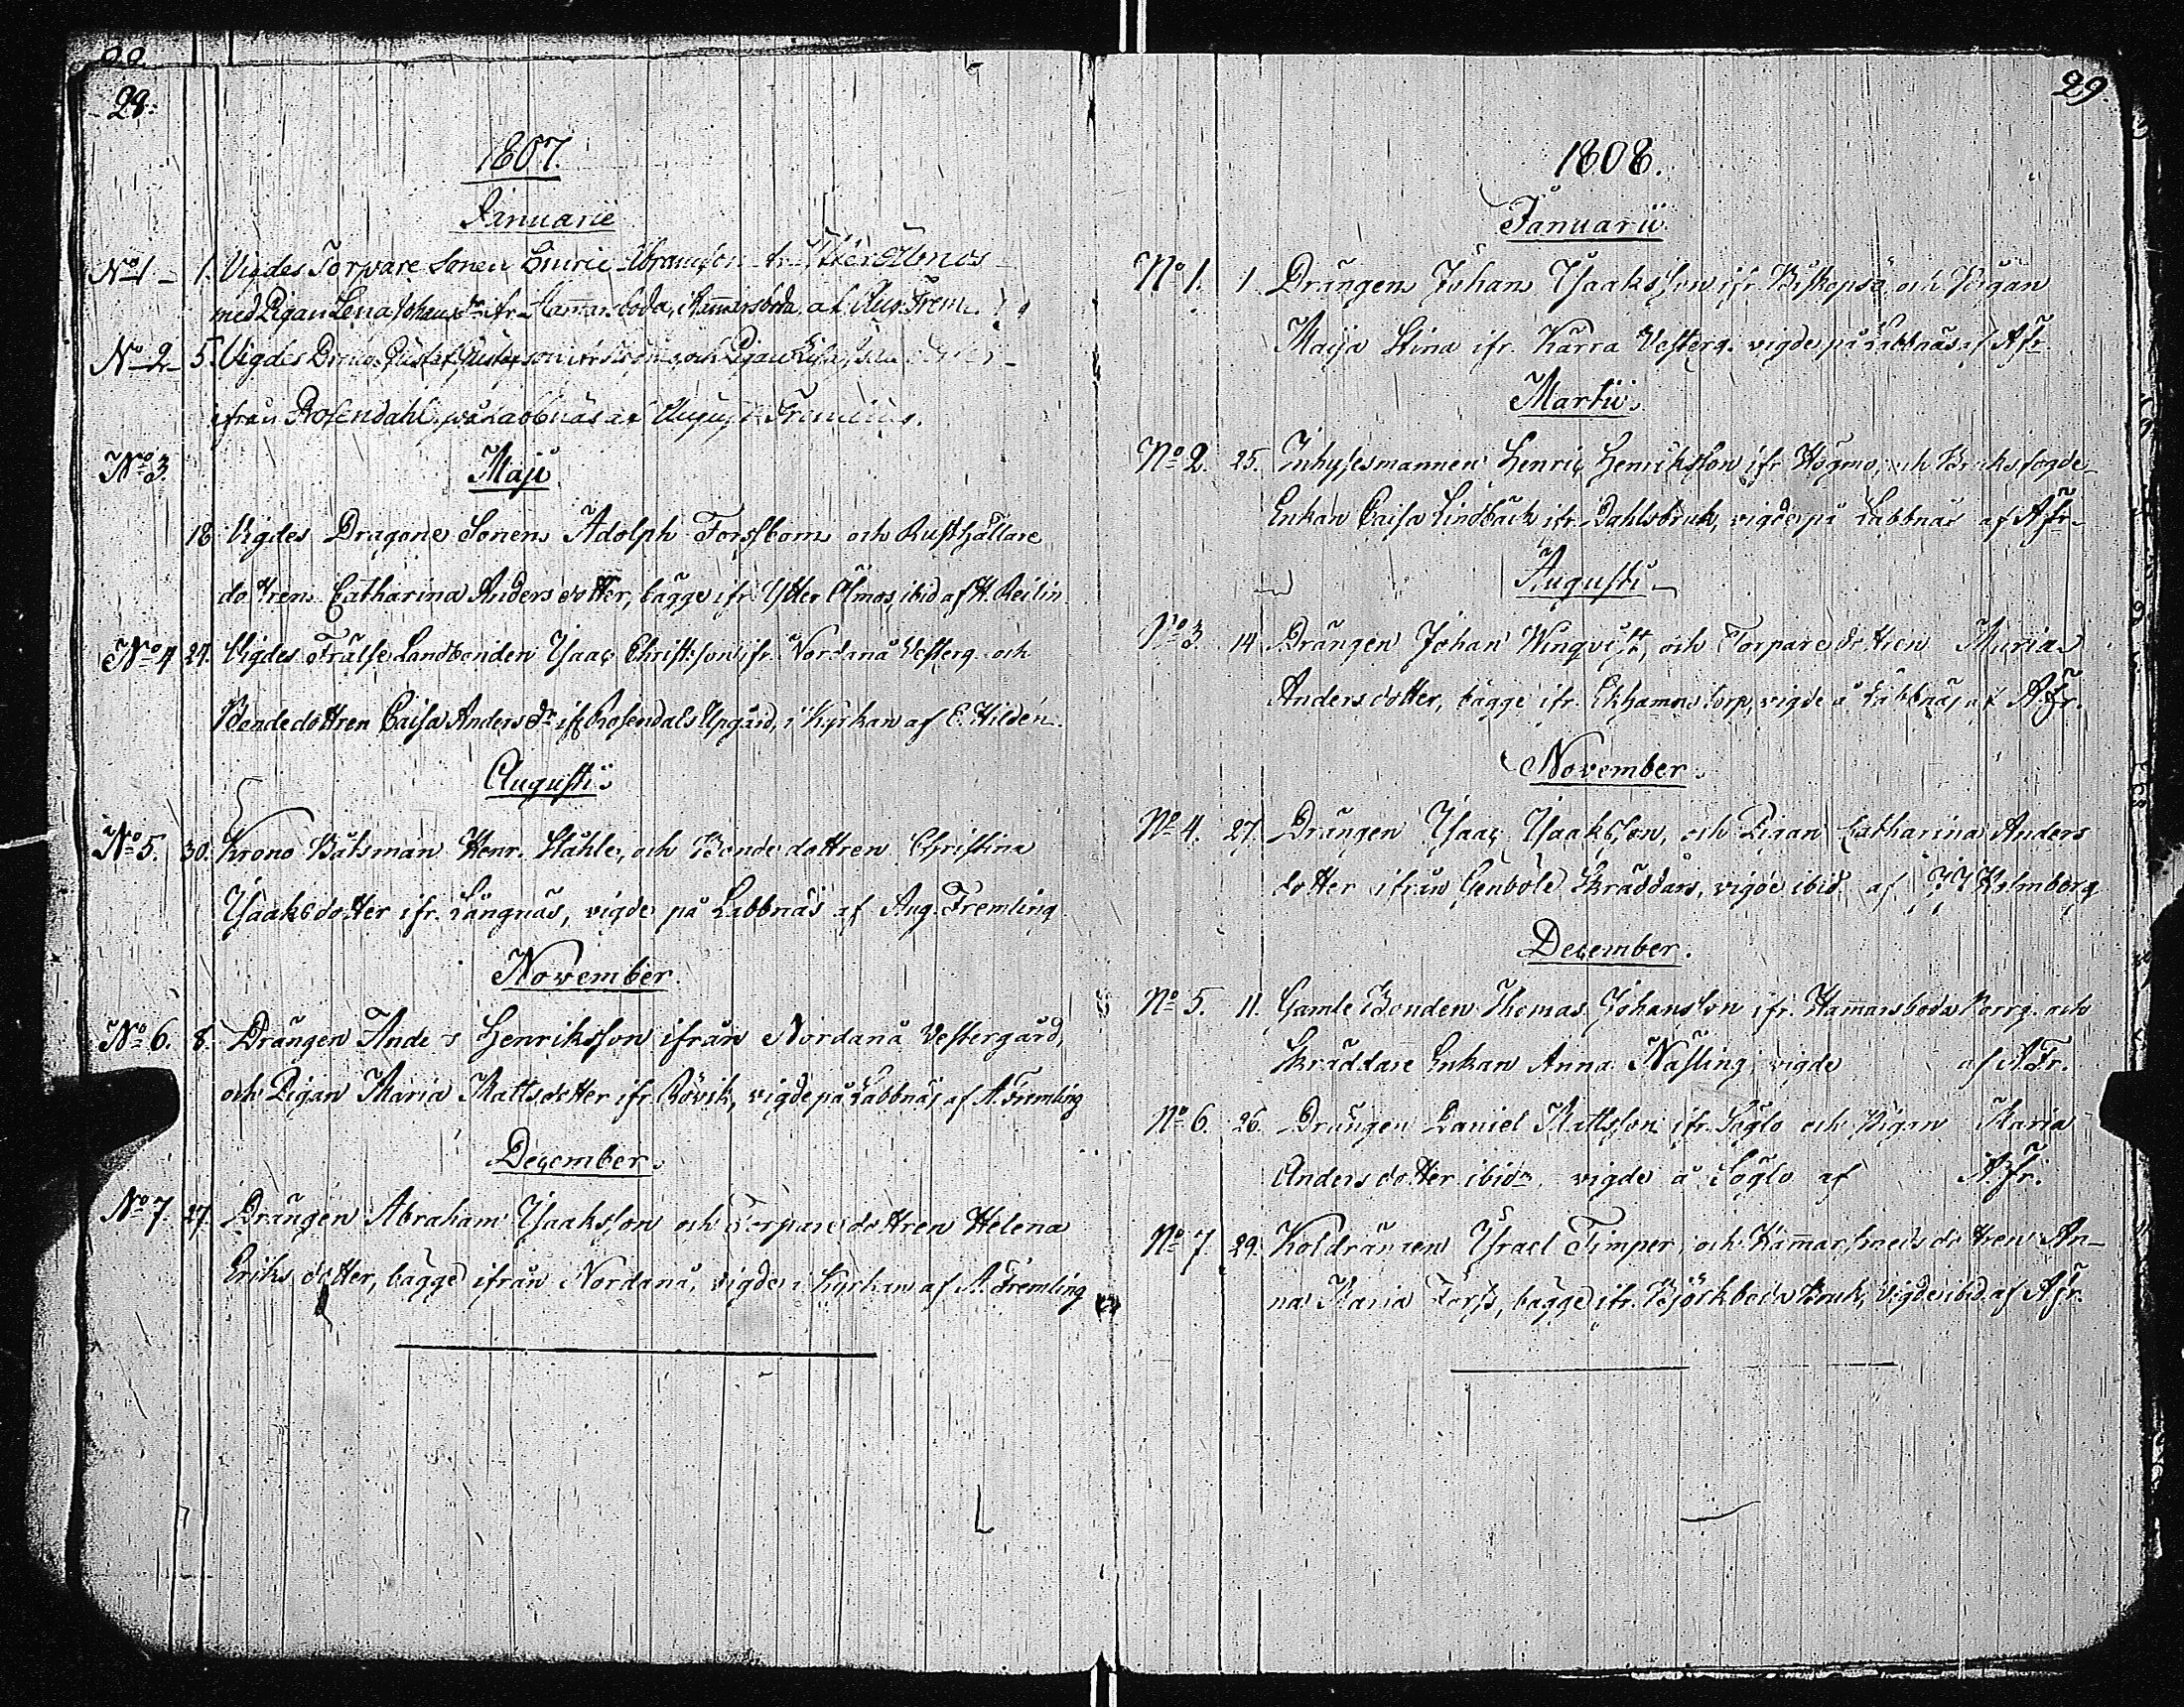 28.
1807.
Januarii
No 1. 1. Vigdes Torpare Sonen Enric Abramson ifr. Ytter Ölmos
med Pigan Lena Johansdr ifr. Hammarsboda, i Hammarsboda af Aug. Frem.
No 2 5. Vigdes Gustaf Gustafson och Pigan Lisa
ifrån Rosendahl, på Labbnäs af August Fremling.
No 3. Maji
18 Vigdes Dragone Sonen Adolph Forssbom och Rusthållare
dottren Catharina Andersdotter, bägge ifr. Ytter Ölmos, ibid af H. Reilin
No 4 24. Vigdes Frälse Landbonden Isaac Christsson ifr. Nordanå Vesterg. och
Bondedottren Caisa Anders dr ifr. Rosendals Upgård, i Kyrkan af E. Hildén.
Augusti.
No 5. 30. Krono Båtsman Henr. Ståhle, och Bonde dottren Christina
Isaksdotter ifr. Långnäs, vigde på Labbnäs af Aug. Fremling
November.
No 6. 8. Drängen Anders Henriksson ifrån Nordanå Vestergård,
och Pigan Maria Mattsdotter ifr. Rövik, vigde på Labbnäs af A. Fremling
December.
No 7. 27. Drängen Abraham Isaaksson och Torpare dottren Helena
Eriks dotter, bägge ifrån Nordanå, vigde i Kyrkan af A. Fremling
29.
1808.
Januarii.
No 1. 1. Drängen Johan Isaaksson ifr. Biskopsö och Pigan
Maija Stina ifr. Kärra Vesterg. vigde på Labbnäs af A fr.
Martii.
No 2. 25. Inhysesmannen Henric Henriksson ifr. Högmo, och Bruksfogde
Enkan Caisa Lindbäck ifr. Dahlsbruk, vigde på Labbnäs af A fr.
Augusti
No 3. 14 Drängen Johan Winqvist, och Torpare dottren Maria
Anders dotter, bägge ifr. Ekhamns torp, vigde å Labbnäs af A. Fr.
November.
No 4. 27. Drängen Isaac Isaaksson, och Pigan Catharina Anders
dotter ifrån Genböle Skräddars, vigde ibid. af Holmborg
December.
No 5. 11. Gamle Bonden Thomas Johansson ifr. Hammarsboda Norrg. och
Skräddare Enkan Anna Näsling vigde af A. Fr.
No 6. 26. Drängen Daniel Mattsson ifr. Söglo och Pigan Maria
Andersdotter ibidm, vigde å Söglo af A. Fr.
No 7. 29. Koldrängen Israel Timper, och Hammarsmeds dottren An-
na Maria Forss, bägge ifr. Björkboda Bruk, Vigde ibid. af A fr.